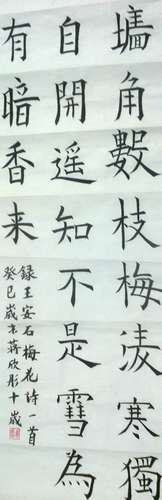 墻角數枝梅淩寒獨
自開遥知不是雪為
有暗香来
録王安石梅花诗一首
癸巳歲末蒋欣彤十歲